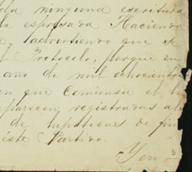 ninguna escritura
la espresada Hacienda
advirtiendo que
Protocolo, porque en
ano de mil ochocientos
en que comienza el
aparecen registradas
de hipotecas de
este Partido.